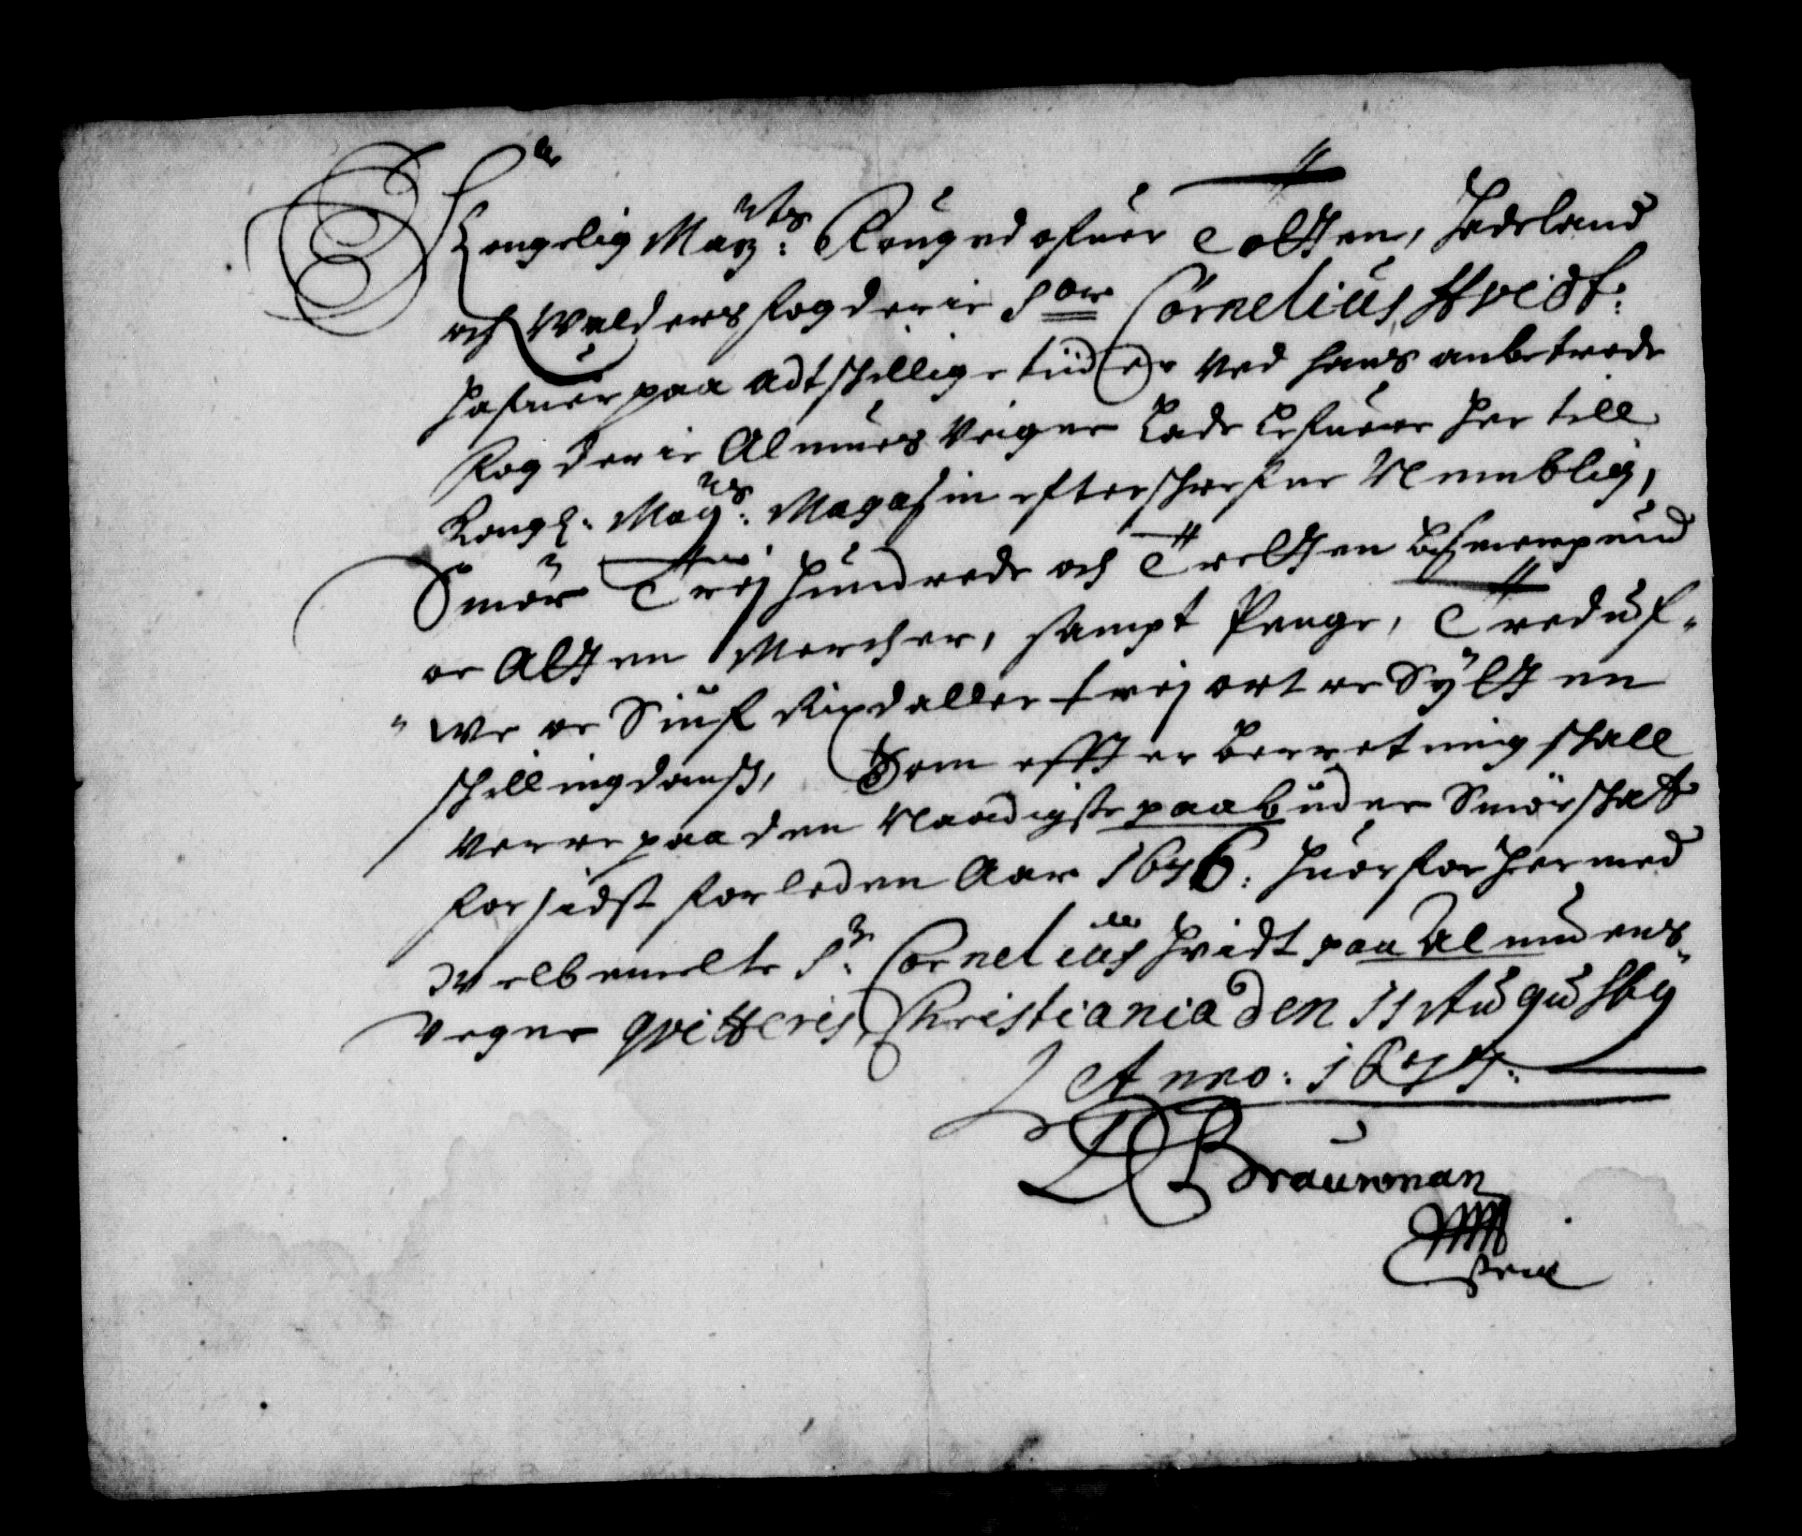 Kongelig May:ts Fouged ofuer Totten, Hadeland
och Walders fogderie Sor Cornelius Hvidt:
Hafuer paa adtschillige tiider Ved hans anbetrode
Fogderie Almues Veigne Lade Lefuere her till
Kongl: May:s Magasin efterschrefne Nemblig,
Smör Trej Hundrede och Tretten bismerpund
oc Atten Marcher, sampt Penge, Treduf-
we oc Siuf Rixdaller trej ort oc Sÿtten
schilling dansch, Som effter berretning schall
Verre paa den Naadigste paabudene Smörschatt
for sidst forleden Aar 1676: Huorfor hermed
Welbemelte Sr: Cornelius Hvidt paa Almuens
Vegne qvitteris, Christiania den 11 Augusty
Anno: 1677:
Brauwman